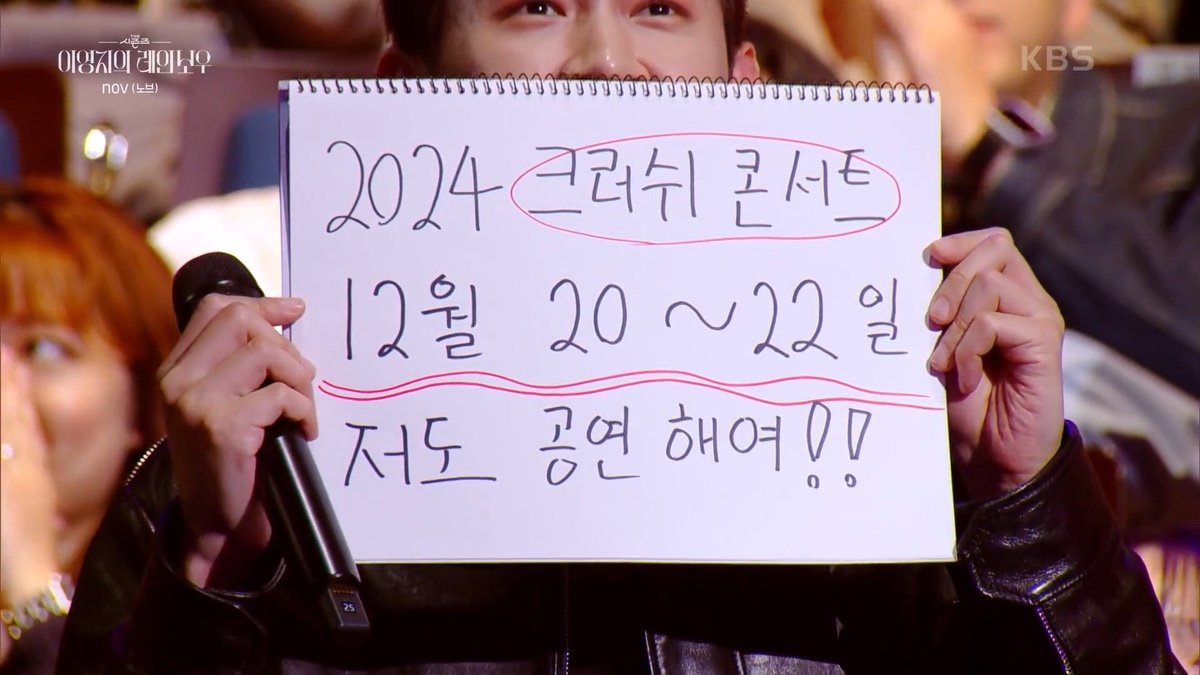 더 시즌즈
이영지의 레인보우
nov (노브)
KBS
2024 크러쉬 콘서트
12월 20~22일
저도 공연 해여!!
25